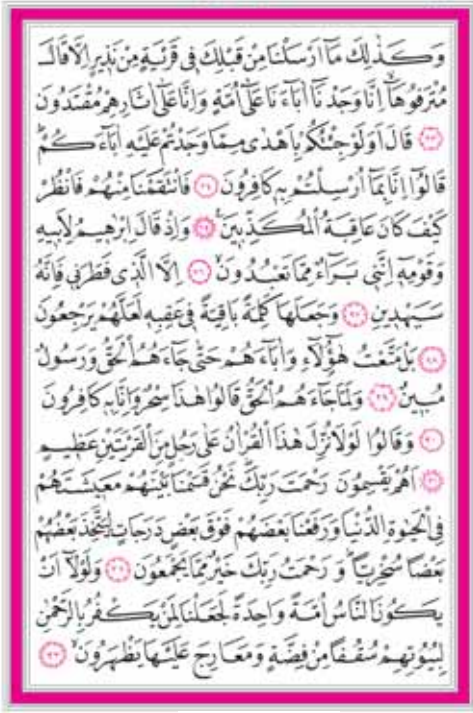 وَكَذٰلِكَ مَٓا اَرْسَلْنَا مِنْ قَبْلِكَ فٖي قَرْيَةٍ مِنْ نَذٖيرٍ اِلَّا قَالَ
مُتْرَفُوهَٓاۙ اِنَّا وَجَدْنَٓا اٰبَٓاءَنَا عَلٰٓى اُمَّةٍ وَاِنَّا عَلٰٓى اٰثَارِهِمْ مُقْتَدُونَ
﴿٢٣﴾ قَالَ اَوَلَوْ جِئْتُكُمْ بِاَهْدٰى مِمَّا وَجَدْتُمْ عَلَيْهِ اٰبَٓاءَكُمْۜ
قَالُٓوا اِنَّا بِمَٓا اُرْسِلْتُمْ بِهٖ كَافِرُونَ ﴿٢٤﴾ فَانْتَقَمْنَا مِنْهُمْ فَانْظُرْ
كَيْفَ كَانَ عَاقِبَةُ الْمُكَذِّبٖينَۚ ﴿٢٥﴾ وَاِذْ قَالَ اِبْرٰهٖيمُ لِاَبٖيهِ
وَقَوْمِهٖٓ اِنَّنٖي بَرَٓاءٌ مِمَّا تَعْبُدُونَۙ ﴿٢٦﴾ اِلَّا الَّذٖي فَطَرَنٖي فَاِنَّهُ
سَيَهْدٖينِ ﴿٢٧﴾ وَجَعَلَهَا كَلِمَةً بَاقِيَةً فٖي عَقِبِهٖ لَعَلَّهُمْ يَرْجِعُونَ
﴿٢٨﴾ بَلْ مَتَّعْتُ هٰٓؤُ۬لَٓاءِ وَاٰبَٓاءَهُمْ حَتّٰى جَٓاءَهُمُ الْحَقُّ وَرَسُولٌ
مُبٖينٌ ﴿٢٩﴾ وَلَمَّا جَٓاءَهُمُ الْحَقُّ قَالُوا هٰذَا سِحْرٌ وَاِنَّا بِهٖ كَافِرُونَ
﴿٣٠﴾ وَقَالُوا لَوْلَا نُزِّلَ هٰذَا الْقُرْاٰنُ عَلٰى رَجُلٍ مِنَ الْقَرْيَتَيْنِ عَظٖيمٍ
﴿٣١﴾ اَهُمْ يَقْسِمُونَ رَحْمَتَ رَبِّكَۜ نَحْنُ قَسَمْنَا بَيْنَهُمْ مَعٖيشَتَهُمْ
فِي الْحَيٰوةِ الدُّنْيَا وَرَفَعْنَا بَعْضَهُمْ فَوْقَ بَعْضٍ دَرَجَاتٍ لِيَتَّخِذَ بَعْضُهُمْ
بَعْضًا سُخْرِيًّاۜ وَرَحْمَتُ رَبِّكَ خَيْرٌ مِمَّا يَجْمَعُونَ ﴿٣٢﴾ وَلَوْلَٓا اَنْ
يَكُونَ النَّاسُ اُمَّةً وَاحِدَةً لَجَعَلْنَا لِمَنْ يَكْفُرُ بِالرَّحْمٰنِ
لِبُيُوتِهِمْ سُقُفًا مِنْ فِضَّةٍ وَمَعَارِجَ عَلَيْهَا يَظْهَرُونَۙ ﴿٣٣﴾